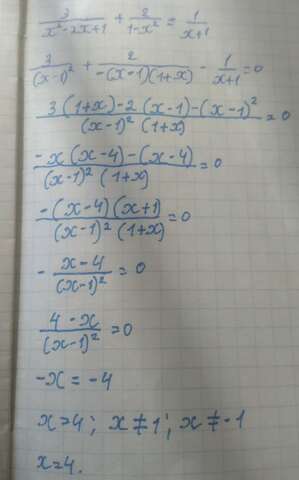 3/(x²-2x+1) + 2/(1-x²) = 1/(x+1)
3/(x-1)² + 2/(-(x-1)(1+x)) - 1/(x+1) = 0
(3(1+x)-2(x-1)-(x-1)²)/((x-1)²(1+x)) = 0
(-x(x-4)-(x-4))/((x-1)²(1+x)) = 0
(-(x-4)(x+1))/((x-1)²(1+x)) = 0
- (x-4)/(x-1)² = 0
(4-x)/(x-1)² = 0
-x = -4
x=4; x≠1; x≠-1
x=4.